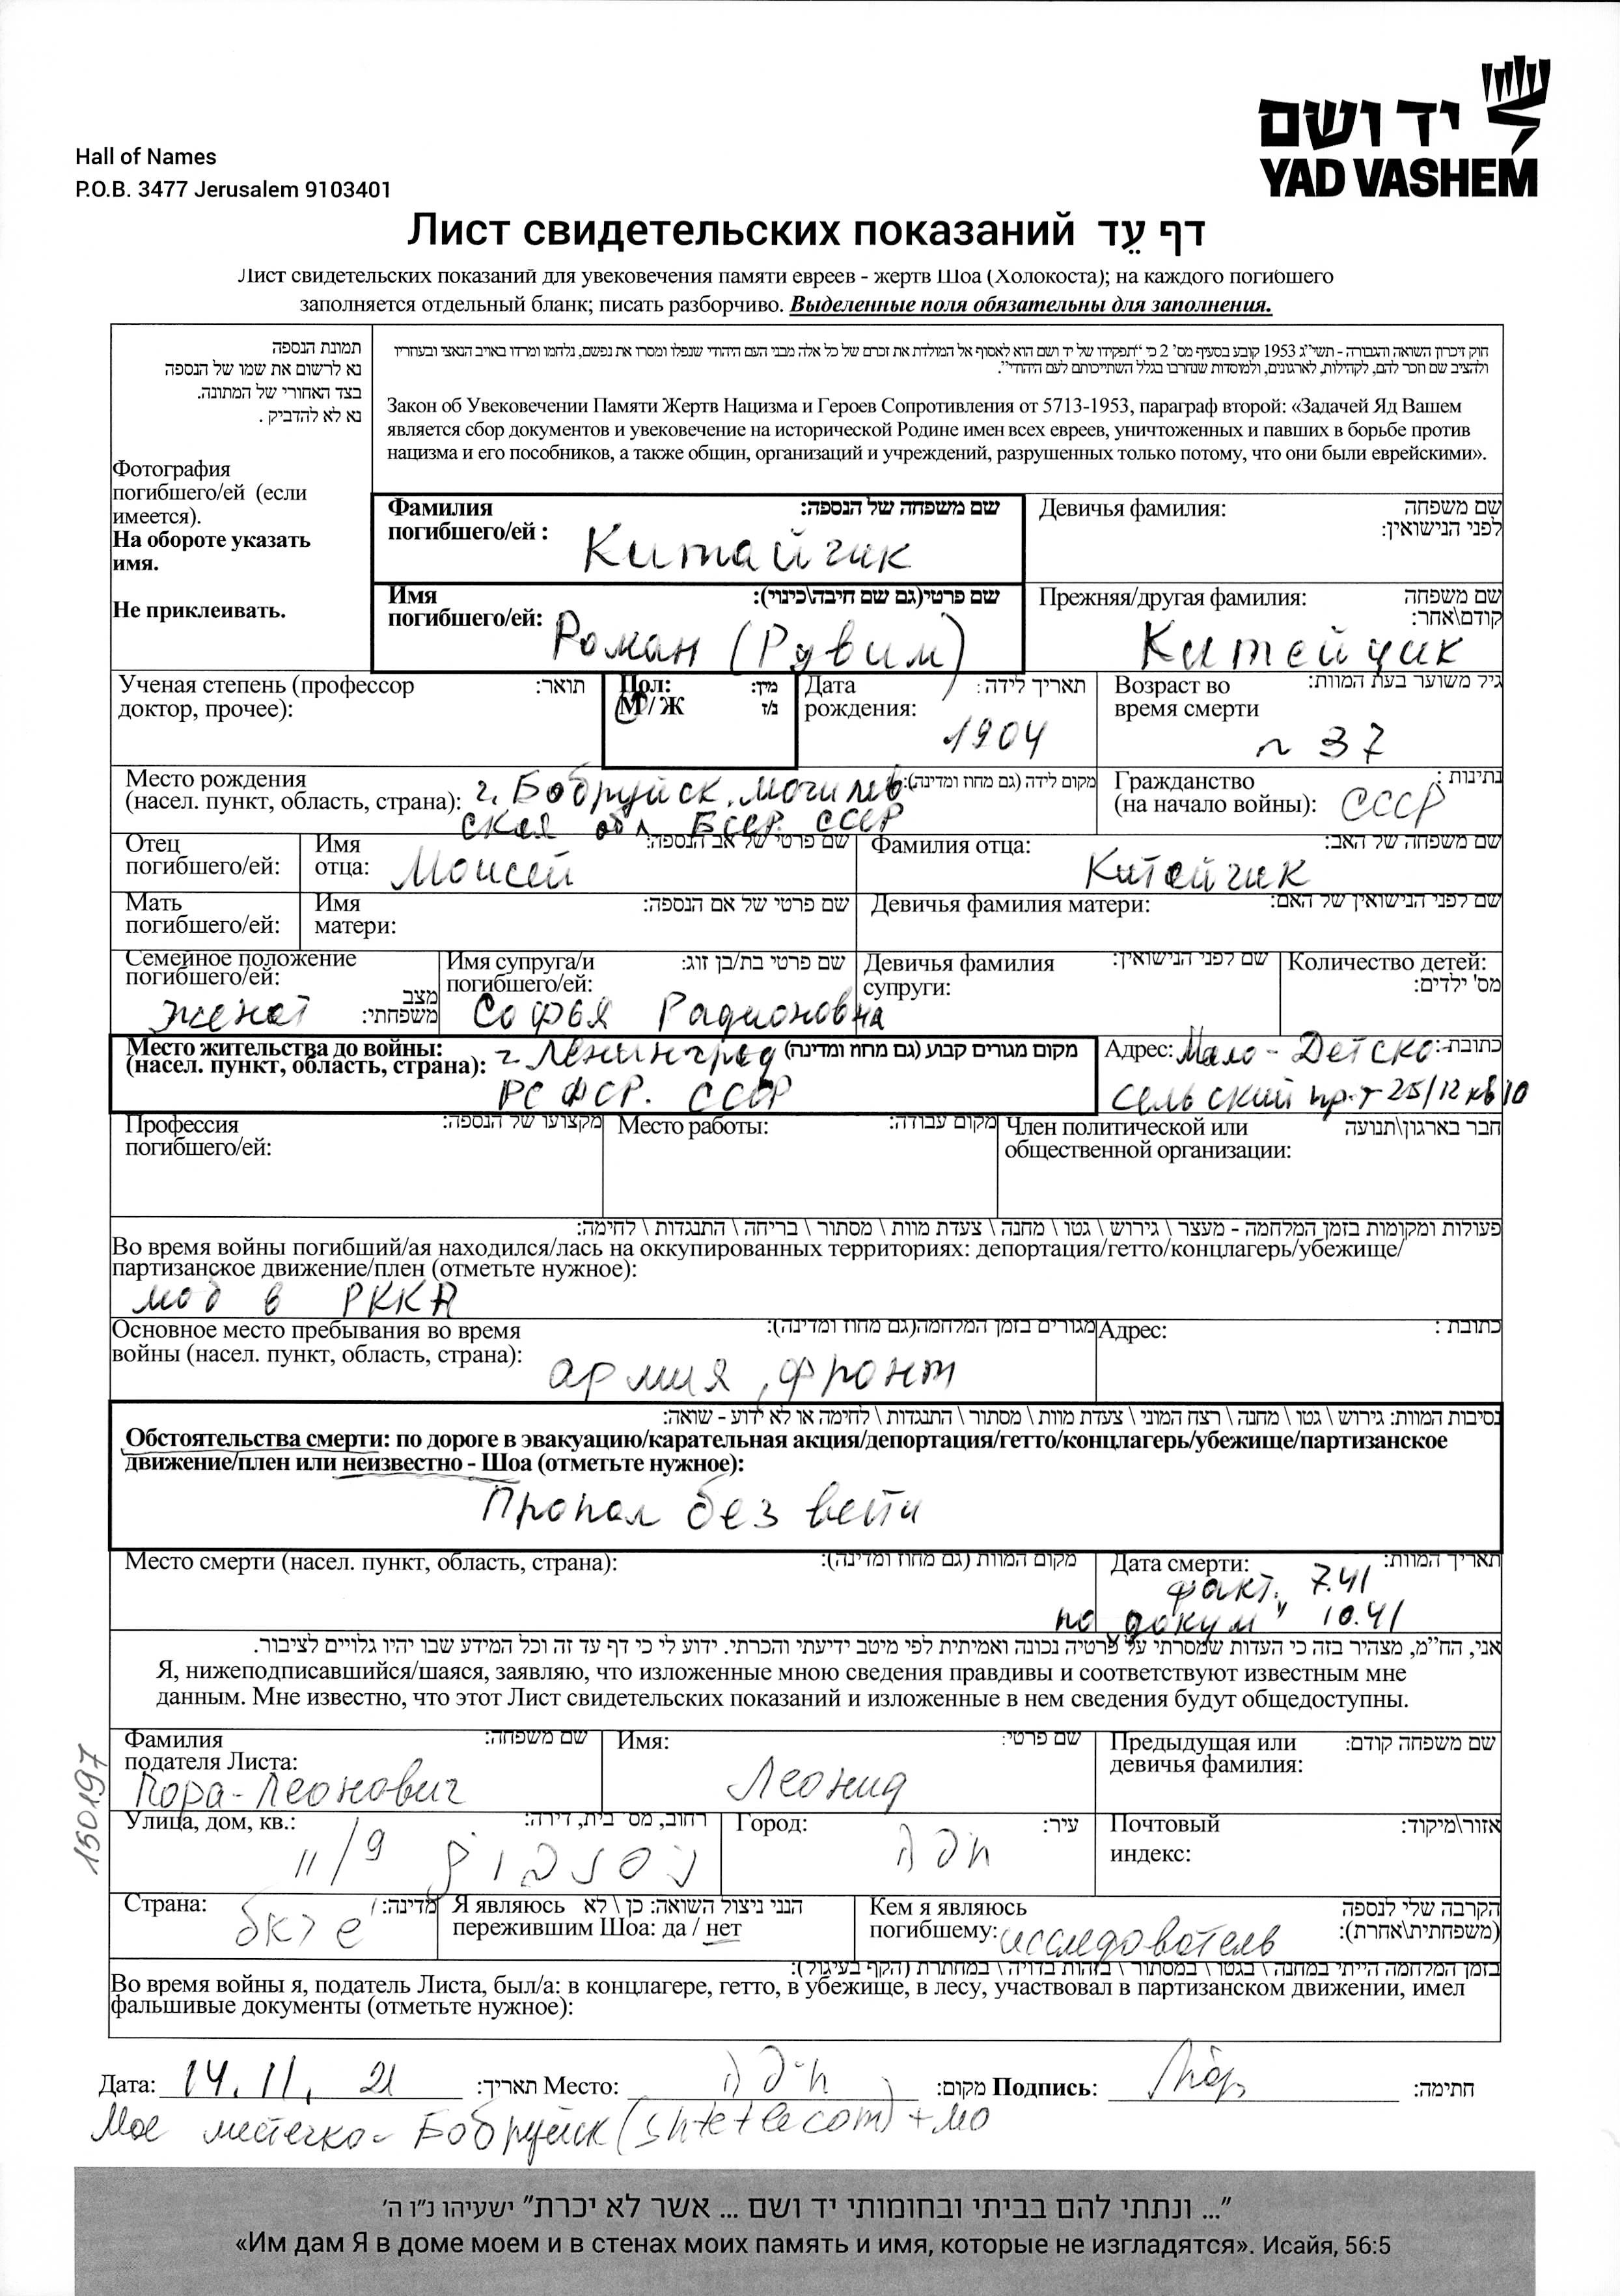 יד ושם
YAD VASHEM
Hall of Names
P.O.B. 3477 Jerusalem 9103401
Лист свидетельских показаний דף עֵד
Лист свидетельских показаний для увековечения памяти евреев - жертв Шоа (Холокоста); на каждого погибшего
заполняется отдельный бланк; писать разборчиво. Выделенные поля обязательны для заполнения.
תמונת הנספה
נא לרשום את שמו של הנספה
בצד האחורי של המתונה.
נא לא להדביק .
Фотография
погибшего/ей (если
имеется).
На обороте указать
имя.
Не приклеивать.
חוק זיכרון השואה והגבורה - תשי״ג 1953 קובע בסעיף מס׳ 2 כי ״תפקידו של יד ושם הוא לאסוף אל המולדת את זכרם של כל אלה מבני העם היהודי שנפלו ומסרו את נפשם, נלחמו ומרדו באויב הנאצי ובעוזריו
ולהציב שם וזכר להם, לקהילות, לארגונים, ולמוסדות שנחרבו בגלל השתייכותם לעם היהודי״.
Закон об Увековечении Памяти Жертв Нацизма и Героев Сопротивления от 5713-1953, параграф второй: «Задачей Яд Вашем
является сбор документов и увековечение на исторической Родине имен всех евреев, уничтоженных и павших в борьбе против
нацизма и его пособников, а также общин, организаций и учреждений, разрушенных только потому, что они были еврейскими».
Фамилия погибшего/ей : שם משפחה של הנספה:
Китайчик
Девичья фамилия: שם משפחה לפני הנישואין:
Имя погибшего/ей: שם פרטי(גם שם חיבה\כינוי):
Роман (Рувим)
Прежняя/другая фамилия: שם משפחה קודם\אחר:
Китейчик
Ученая степень (профессор доктор, прочее): תואר:
Пол: М / Ж מין: ז/נ
Дата рождения: תאריך לידה:
1904
Возраст во время смерти גיל משוער בעת המוות:
~ 37
Место рождения (насел. пункт, область, страна): מקום לידה (גם מחוז ומדינה):
г. Бобруйск, Могилев
ская обл БССР. СССР
Гражданство (на начало войны): נתינות:
СССР
Отец погибшего/ей:
Имя отца: שם פרטי של אב הנספה:
Моисей
Фамилия отца: שם משפחה של האב:
Китайчик
Мать погибшего/ей:
Имя матери: שם פרטי של אם הנספה:
Девичья фамилия матери: שם לפני הנישואין של האם:
Семейное положение погибшего/ей: מצב משפחתי:
женат
Имя супруга/и погибшего/ей: שם פרטי בת/בן זוג:
Софья Радионовна
Девичья фамилия супруги: שם לפני הנישואין:
Количество детей: מס' ילדים:
Место жительства до войны: (насел. пункт, область, страна): מקום מגורים קבוע (גם מחוז ומדינה)
г. Ленинград
РСФСР. СССР
Адрес: כתובת:
Мало-Детско
сельский пр-т 25/12 кв 10
Профессия погибшего/ей: מקצועו של הנספה:
Место работы: מקום עבודה:
Член политической или общественной организации: חבר בארגון\תנועה
פעולות ומקומות בזמן המלחמה - מעצר \ גירוש \ גטו \ מחנה \ צעדת מוות \ מסתור \ בריחה \ התנגדות \ לחימה:
Во время войны погибший/ая находился/лась на оккупированных территориях: депортация/гетто/концлагерь/убежище/
партизанское движение/плен (отметьте нужное):
моб в РККА
Основное место пребывания во время войны (насел. пункт, область, страна): מגורים בזמן המלחמה(גם מחוז ומדינה):
армия, фронт
Адрес: כתובת :
נסיבות המוות: גירוש \ גטו \ מחנה \ רצח המוני \ צעדת מוות \ מסתור \ התנגדות \ לחימה או לא ידוע - שואה:
Обстоятельства смерти: по дороге в эвакуацию/карательная акция/депортация/гетто/концлагерь/убежище/партизанское
движение/плен или неизвестно - Шоа (отметьте нужное):
Пропал без вести
Место смерти (насел. пункт, область, страна): מקום המוות (גם מחוז ומדינה):
Дата смерти: תאריך המוות:
факт. 7.41
по докум" 10.41
אני, הח״מ, מצהיר בזה כי העדות שמסרתי על פרטיה נכונה ואמיתית לפי מיטב ידיעתי והכרתי. ידוע לי כי דף עד זה וכל המידע שבו יהיו גלויים לציבור.
Я, нижеподписавшийся/шаяся, заявляю, что изложенные мною сведения правдивы и соответствуют известным мне
данным. Мне известно, что этот Лист свидетельских показаний и изложенные в нем сведения будут общедоступны.
150197
Фамилия подателя Листа: שם משפחה:
Пора-Леонович
Имя: שם פרטי:
Леонид
Предыдущая или девичья фамилия: שם משפחה קודם:
Улица, дом, кв.: רחוב, מס' בית, דירה:
11/9
Город: עיר:
חיפה
Почтовый индекс: אזור\מיקוד:
Страна: מדינה:
Я являюсь пережившим Шоа: да / нет הנני ניצול השואה: כן \ לא
Кем я являюсь погибшему: הקרבה שלי לנספה (משפחתית\אחרת):
исследователь
בזמן המלחמה הייתי במחנה \ בגטו \ במסתור \ בזהות בדויה \ במחתרת (הקף בעיגול):
Во время войны я, податель Листа, был/а: в концлагере, гетто, в убежище, в лесу, участвовал в партизанском движении, имел
фальшивые документы (отметьте нужное):
Дата: 14.11. 21 תאריך: Место: חיפה מקום: Подпись: חתימה:
Мое местечко - Бобруйск (shtetle.com) + МО
״... ונתתי להם בביתי ובחומותי יד ושם ... אשר לא יכרת״ ישעיהו נ״ו ה׳
«Им дам Я в доме моем и в стенах моих память и имя, которые не изгладятся». Исайя, 56:5